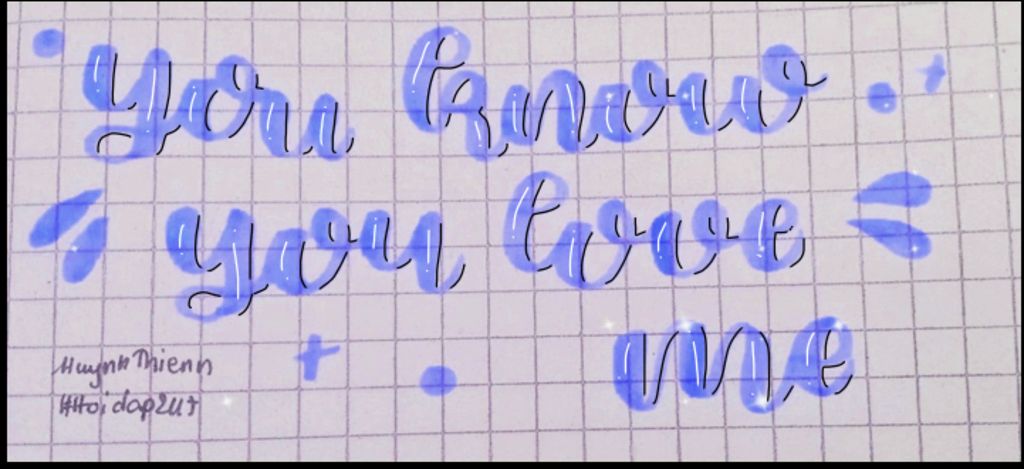 You know
you love
me
HuynhThienn
#Hoidap247